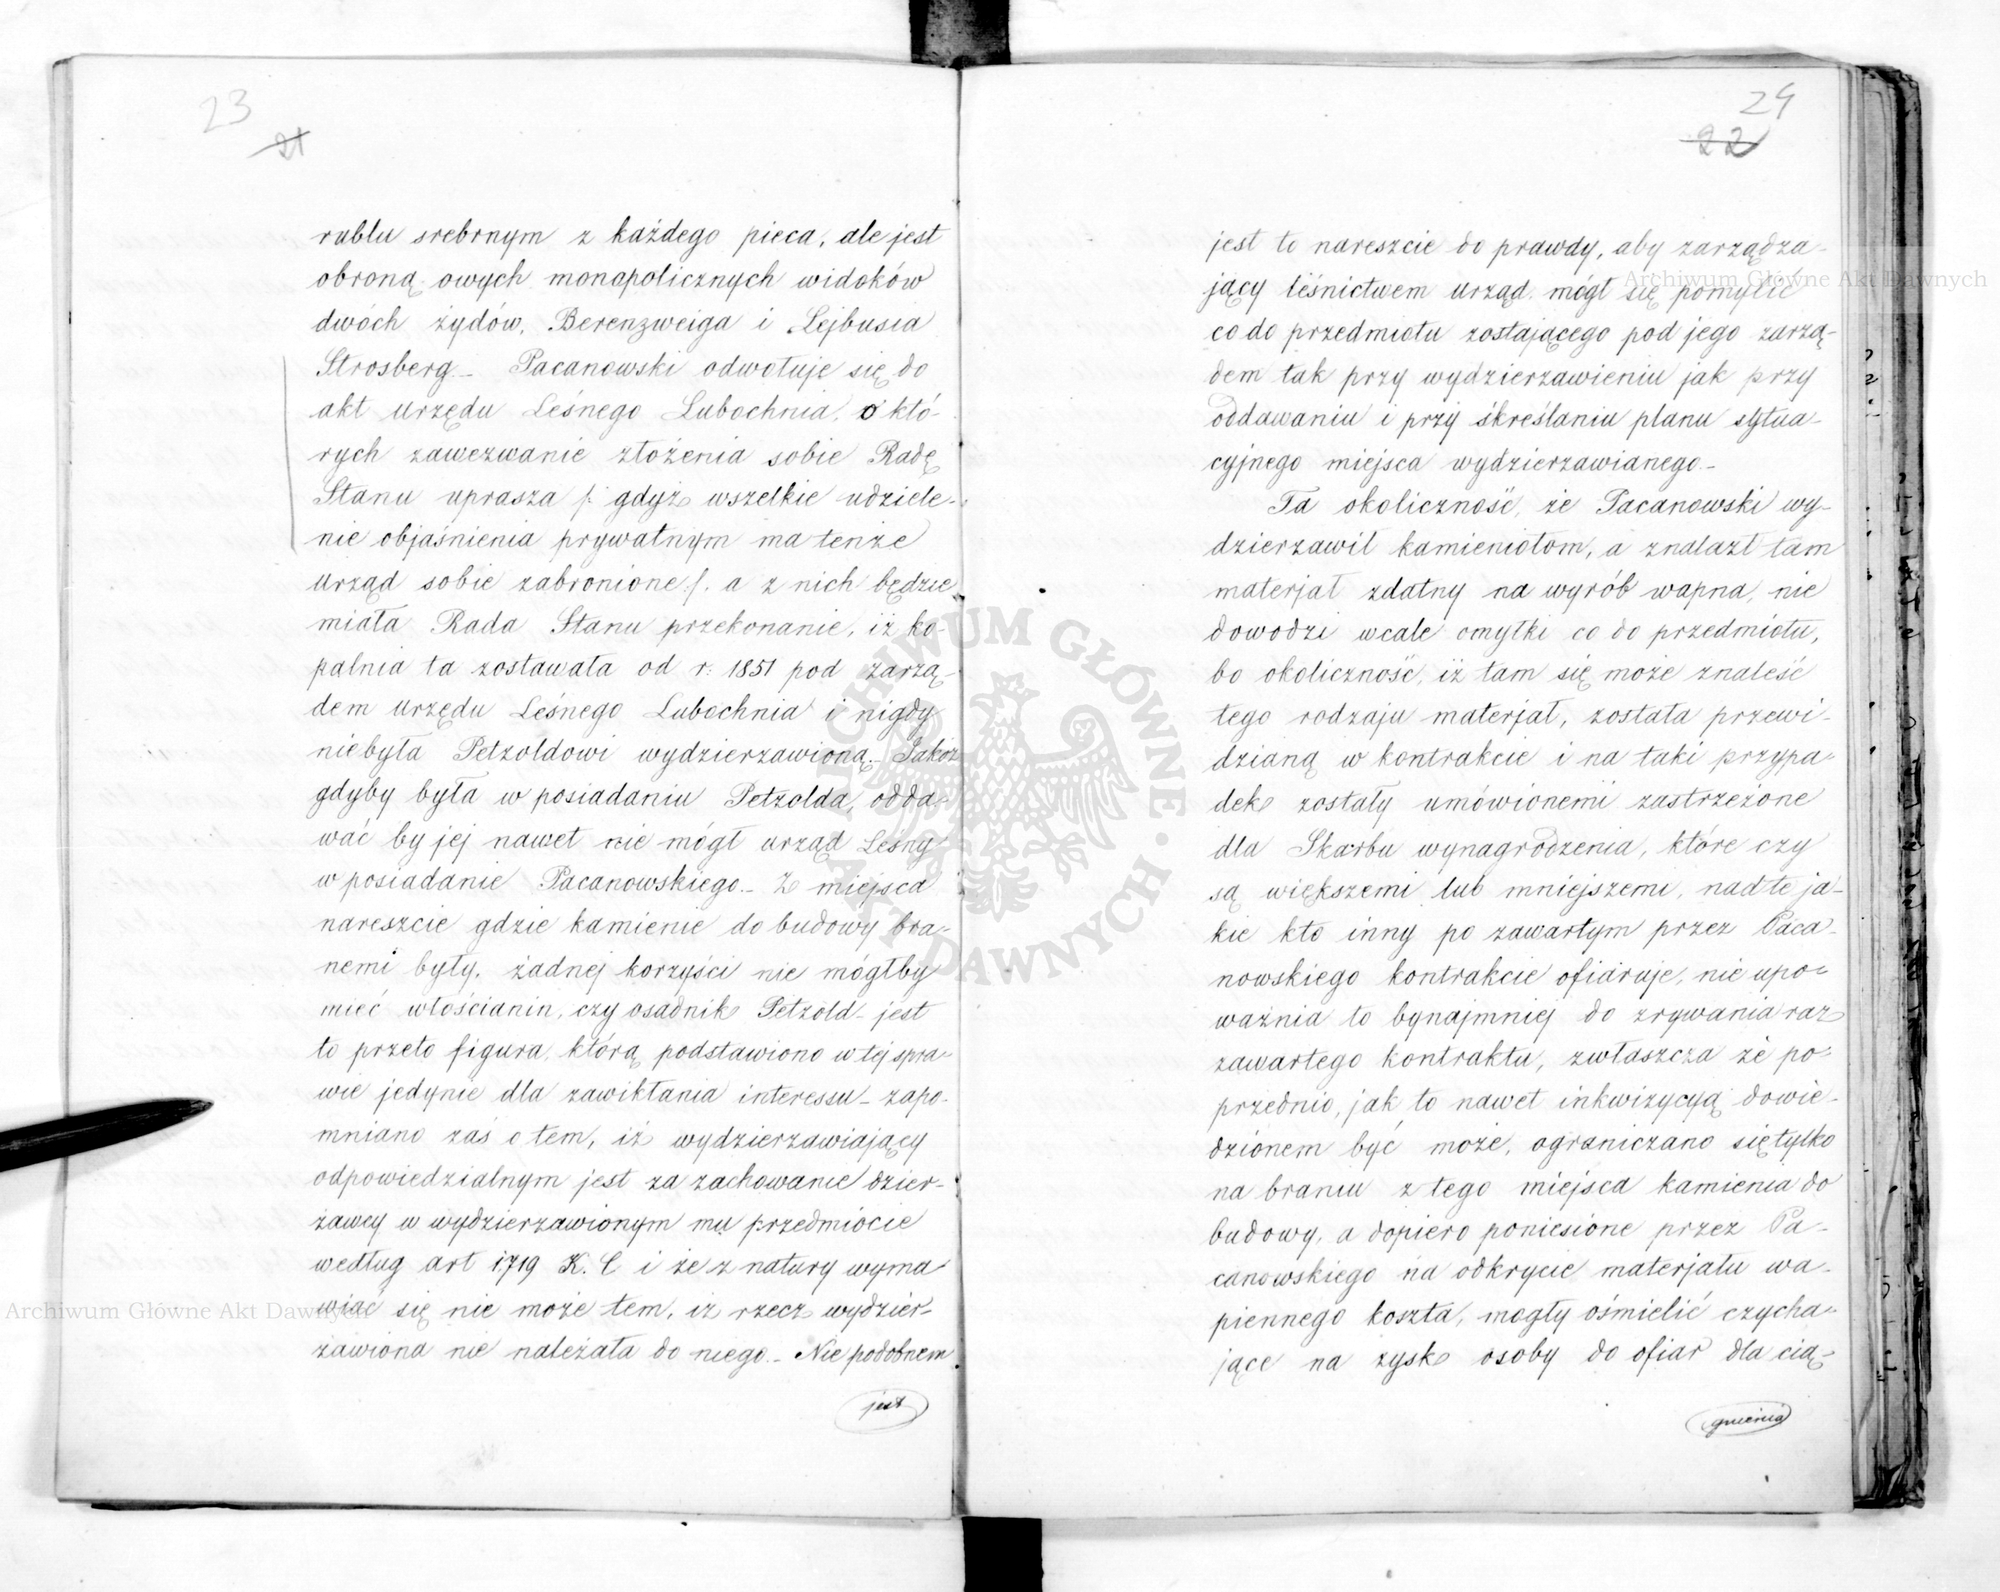 23
21
rublu srebrnym z każdego pieca, ale jest
obroną owych monopolicznych widoków
dwóch żydów, Berenzweiga i Lejbusia
Strosberg. – Pacanowski odwołuje się do
akt urzędu Leśnego Lubochnia, o któ-
rych zawezwanie złożenia sobie Radę
Stanu uprasza /: gdyż wszelkie udziele-
nie objaśnienia prywatnym ma tenże
urząd sobie zabronione :/. a z nich będzie
miała Rada Stanu przekonanie, iż ko-
palnia ta zostawała od r: 1851 pod zarzą-
dem urzędu Leśnego Lubochnia i nigdy
niebyła Petzoldowi wydzierzawioną. – Jakoż
gdyby była w posiadaniu Petzolda, odda-
wać by jej nawet nie mógł urząd Leśny
w posiadanie Pacanowskiego. – Z miejsca
nareszcie gdzie kamienie do budowy bra-
nemi były, żadnej korzyści nie mógłby
mieć włościanin, czy osadnik Petzold – jest
to przeto figura, którą podstawiono w tej spra-
wie jedynie dla zawikłania interessu – zapo-
mniano zaś o tem, iż wydzierzawiający
odpowiedzialnym jest za zachowanie dzier-
żawcy w wydzierzawionym mu przedmiocie
według art 1719 K. C i że z natury wyma
wiać się nie może tem, iż rzecz wydzier-
zawiona nie należała do niego. – Nie podobnem
jest
24
22
jest to nareszcie do prawdy, aby zarządza-
jący leśnictwem urząd mógł się pomylić
co do przedmiotu zostającego pod jego zarzą-
dem tak przy wydzierzawieniu jak przy
oddawaniu i przy skreślaniu planu sytua-
cyjnego miejsca wydzierzawianego. –
Ta okoliczność, że Pacanowski wy-
dzierzawił kamieniołom, a znalazł tam
materjał zdatny na wyrób wapna, nie
dowodzi wcale omyłki co do przedmiotu,
bo okoliczność, iż tam się może znaleść
tego rodzaju materjał, została przewi-
dzianą w kontrakcie i na taki przypa-
dek zostały umówionemi zastrzeżone
dla Skarbu wynagrodzenia, które czy
są większemi lub mniejszemi, nad te ja-
kie kto inny po zawartym przez Paca-
nowskiego kontrakcie ofiaruje, nie upo-
ważnia to bynajmniej do zrywania raz
zawartego kontraktu, zwłaszcza że po-
przednio, jak to nawet inkwizycyą dowie-
dzionem być może, ograniczano się tylko
na braniu z tego miejsca kamienia do
budowy, a dopiero poniesione przez Pa-
canowskiego na odkrycie materjału wa-
piennego koszta, mogły ośmielić czycha-
jące na zysk osoby do ofiar dla cią-
gnienia
Archiwum Główne Akt Dawnych
Archiwum Główne Akt Dawnych
ARCHIWUM GŁÓWNE AKT DAWNYCH